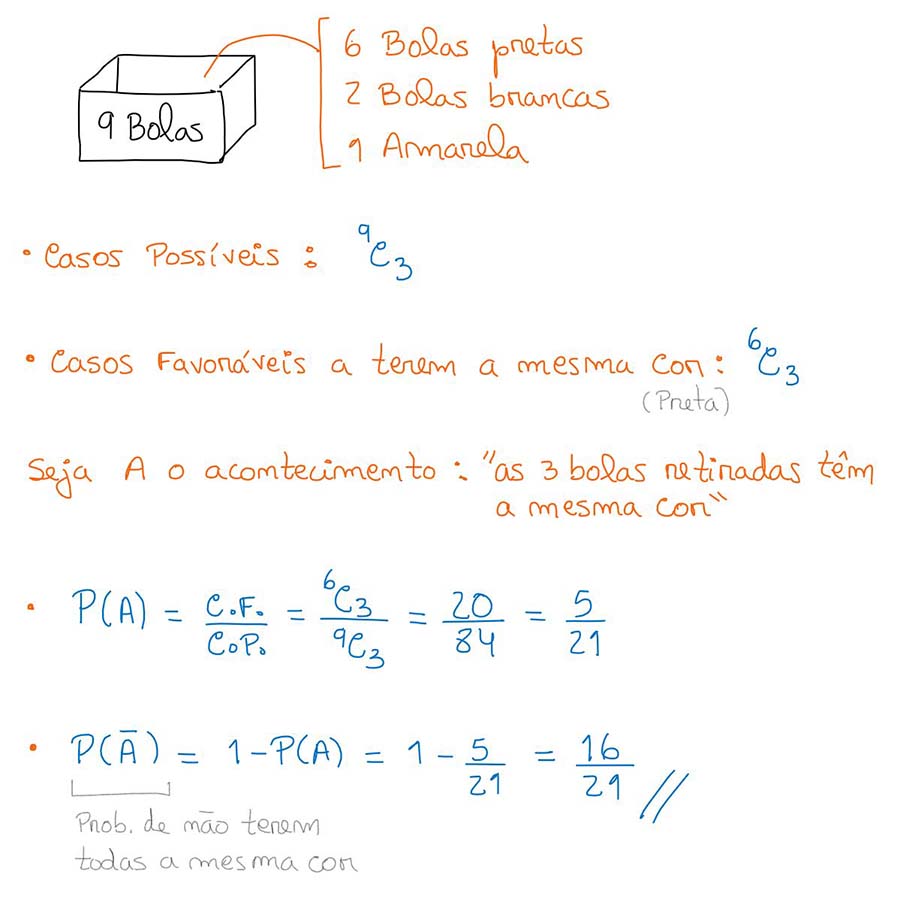 9 Bolas
6 Bolas pretas
2 Bolas brancas
1 Amarela
• Casos Possíveis : ⁹C₃
• Casos Favoráveis a terem a mesma cor : ⁶C₃
(Preta)
Seja A o acontecimento : "as 3 bolas retiradas têm
a mesma cor"
• P(A) = C.F./C.P. = ⁶C₃/⁹C₃ = 20/84 = 5/21
• P(Ā) = 1 - P(A) = 1 - 5/21 = 16/21 //
Prob. de não terem
todas a mesma cor